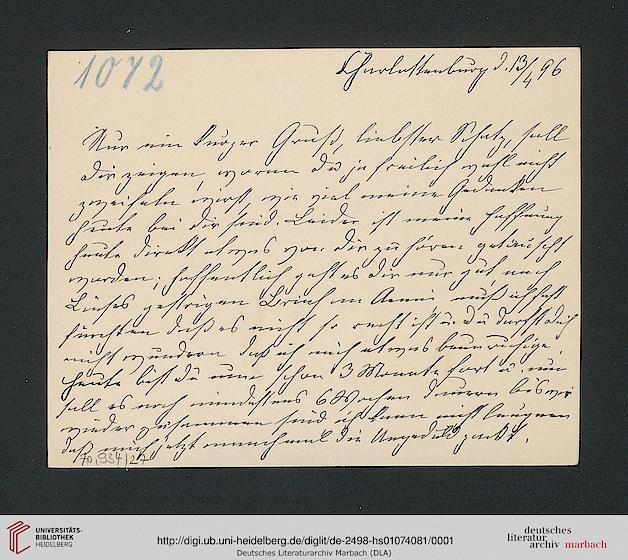 1072
Charlottenburg d. 13/4 96
Nur ein kurzer Gruß, liebster Schatz, soll
Dir zeigen, woran Du ja freilich wohl nicht
zweifeln wirst, wie viel meine Gedanken
heute bei Dir sind. Leider ist meine Hoffnung
heute direkt etwas von Dir zu hören getäuscht
worden; hoffentlich geht es Dir nur gut, nach
Deines gestrigen Brief an muß ich fast
fürchten daß es nicht so recht ist u. Du darfst Dich
nicht wundern daß ich mich etwas beunruhige.
Heute bist Du nun schon 3 Monate fort u. nun
soll es noch mindestens 6 Wochen dauern bis wir
wieder zusammen sind ich kann nicht leugnen
daß mich jetzt manchmal die Ungeduld packt.
70.934/27
UNIVERSITÄTS-
BIBLIOTHEK
HEIDELBERG
http://digi.ub.uni-heidelberg.de/diglit/de-2498-hs01074081/0001
Deutsches Literaturarchiv Marbach (DLA)
deutsches
literatur
archiv marbach